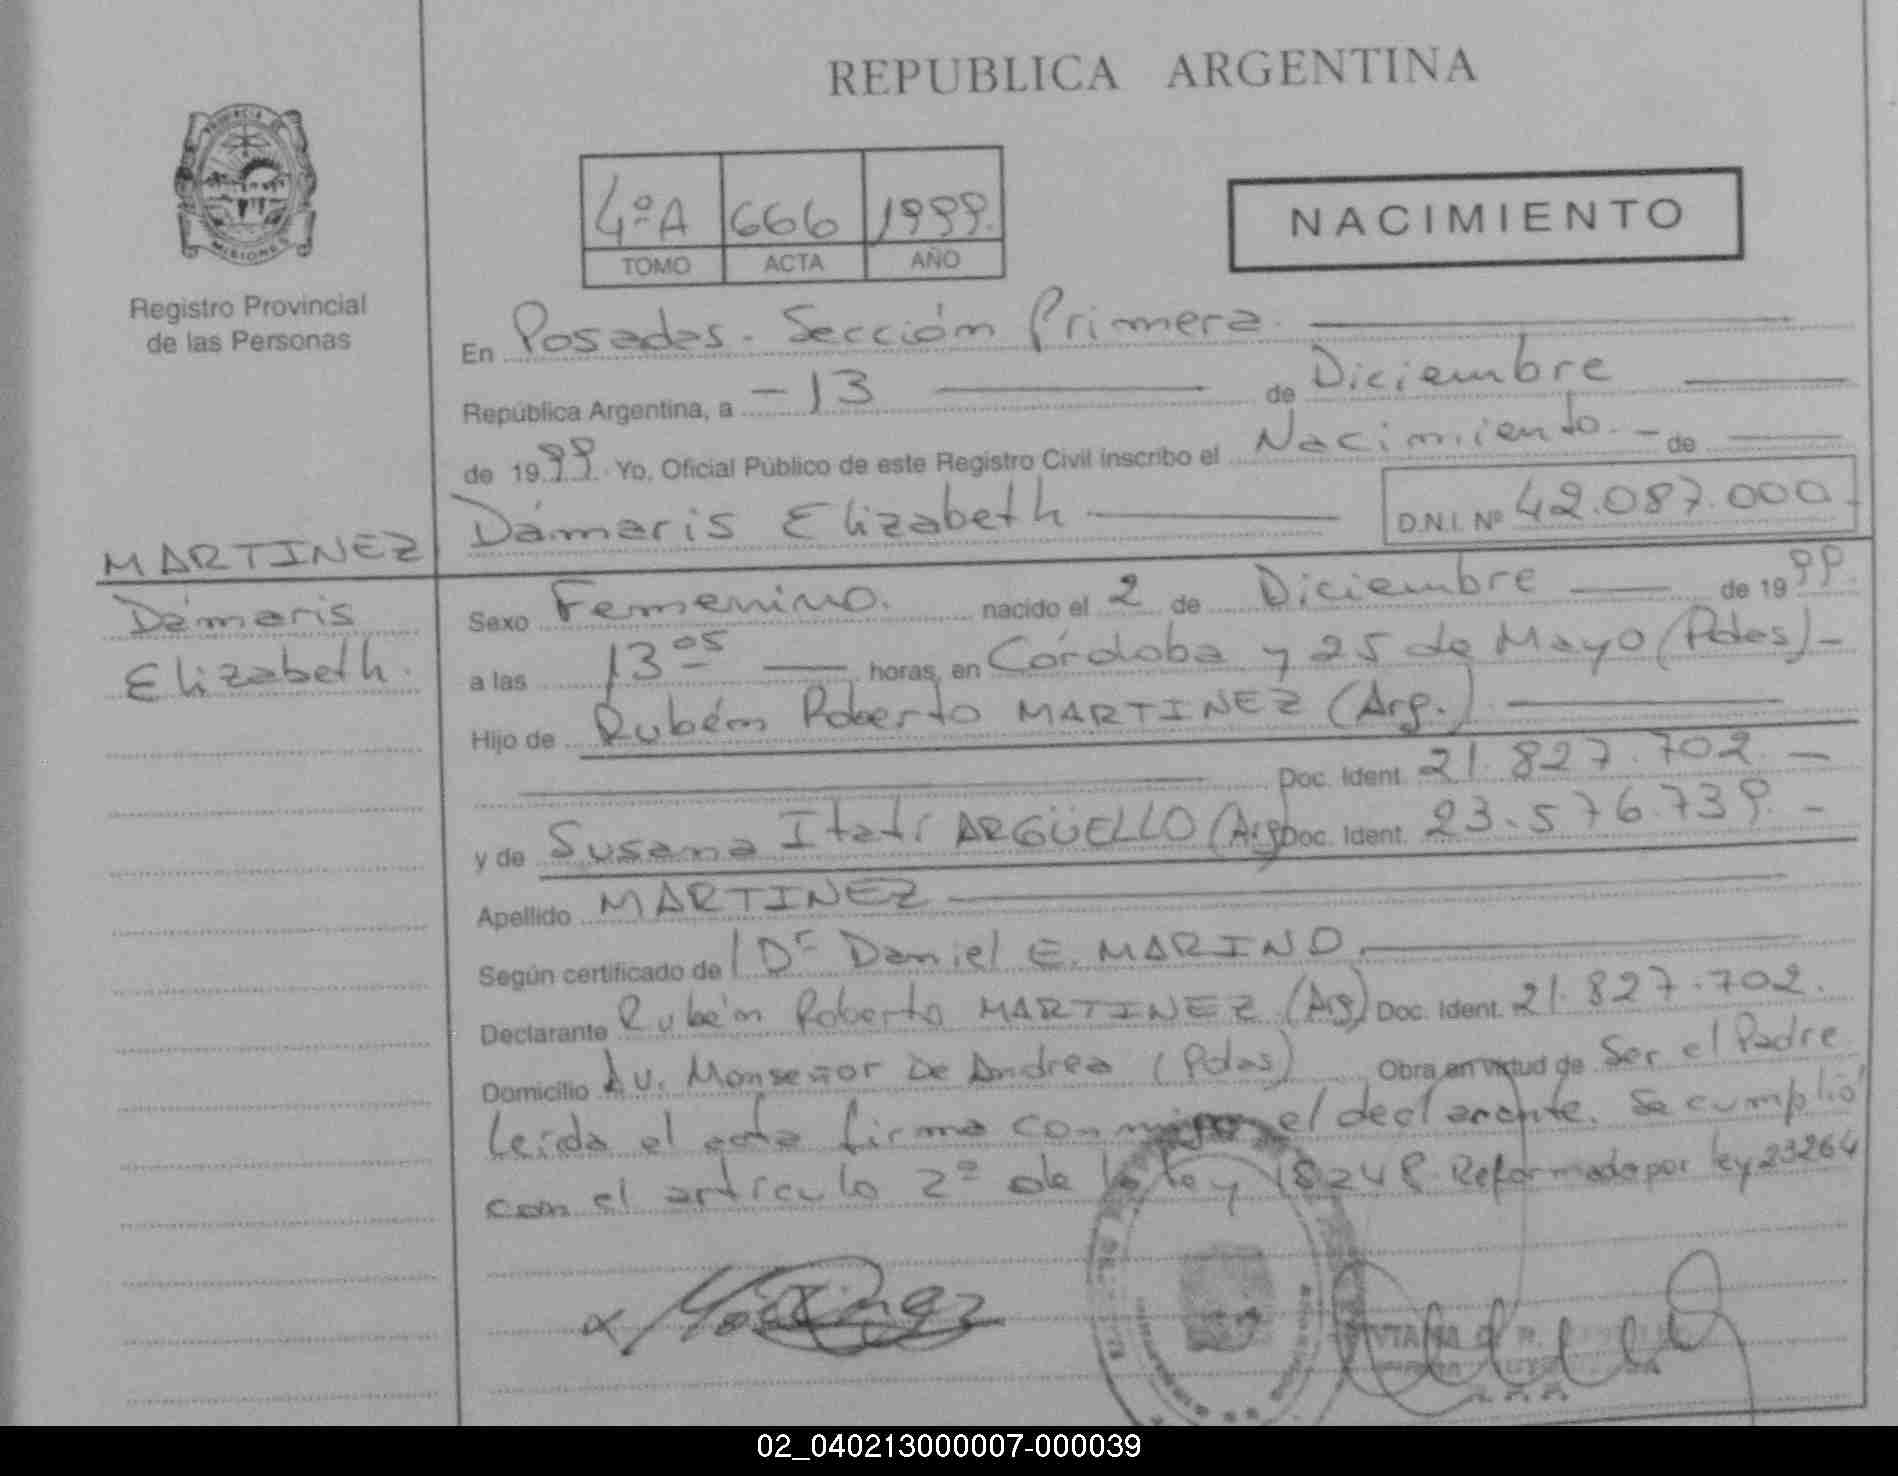 REPUBLICA ARGENTINA
PROVINCIA DE
MISIONES
Registro Provincial
de las Personas
4º A 666 1999.
TOMO ACTA AÑO
NACIMIENTO
En Posadas. Sección Primera.
República Argentina, a - 13 de Diciembre
de 1999. Yo, Oficial Público de este Registro Civil inscribo el Nacimiento. - de
Dámaris Elizabeth D.N.I. Nº 42.087.000.
MARTINEZ
Dámaris
Elizabeth.
Sexo Femenino. nacido el 2 de Diciembre de 1999.
a las 13 05 horas, en Córdoba y 25 de Mayo (Pdas) -
Hijo de Rubén Roberto MARTINEZ (Arg.)
Doc. Ident. 21.827.702. -
y de Susana Itatí ARGÜELLO (Arg) Doc. Ident. 23.576.739. -
Apellido MARTINEZ
Según certificado de Dr Daniel E. MARINO.
Declarante Rubén Roberto MARTINEZ (Arg) Doc. Ident. 21.827.702.
Domicilio Av. Monseñor De Andrea (Pdas) Obra en virtud de Ser el Padre
Leída el acta firma conmigo el declarante. Se cumplió
con el artículo 2º de la ley 18248. Reformada por ley 23264
Martinez
02_040213000007-000039